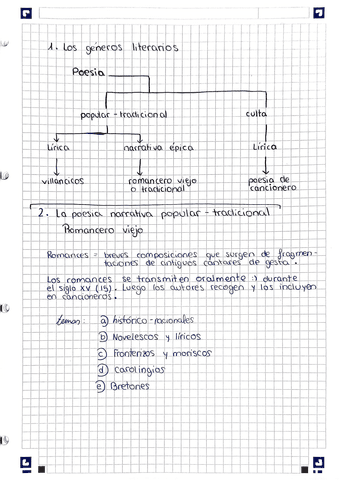 1. Los géneros literarios
Poesía
popular - tradicional
culta
Lírica
narrativa épica
Lírica
villancicos
romancero viejo
o tradicional
poesía de
cancionero
2. La poesía narrativa popular - tradicional
Romancero viejo
Romances = breves composiciones que surgen de fragmen-
taciones de antiguos cantares de gesta.
Los romances se transmiten oralmente :) durante
el siglo XV (15). Luego los autores recogen y los incluyen
en cancioneros.
temas: a) histórico - nacionales
b) Novelescos y líricos
c) Fronterizos y moriscos
d) carolingios
e) Bretones